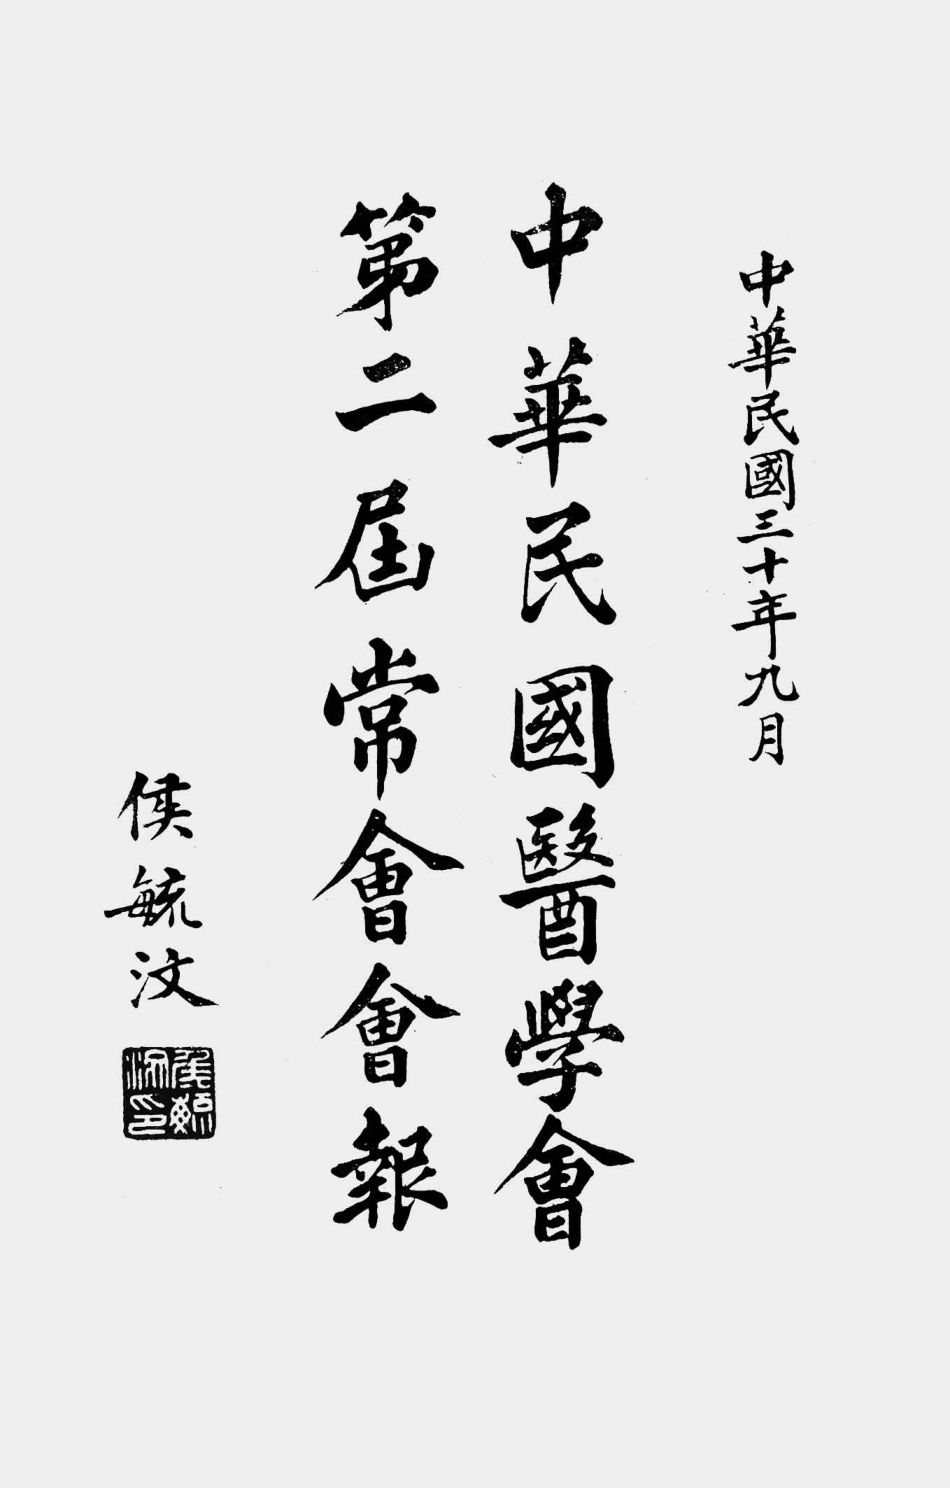 中華民國三十年九月
中華民國醫學會
第二屆常會會報
侯毓汶
侯毓汶印